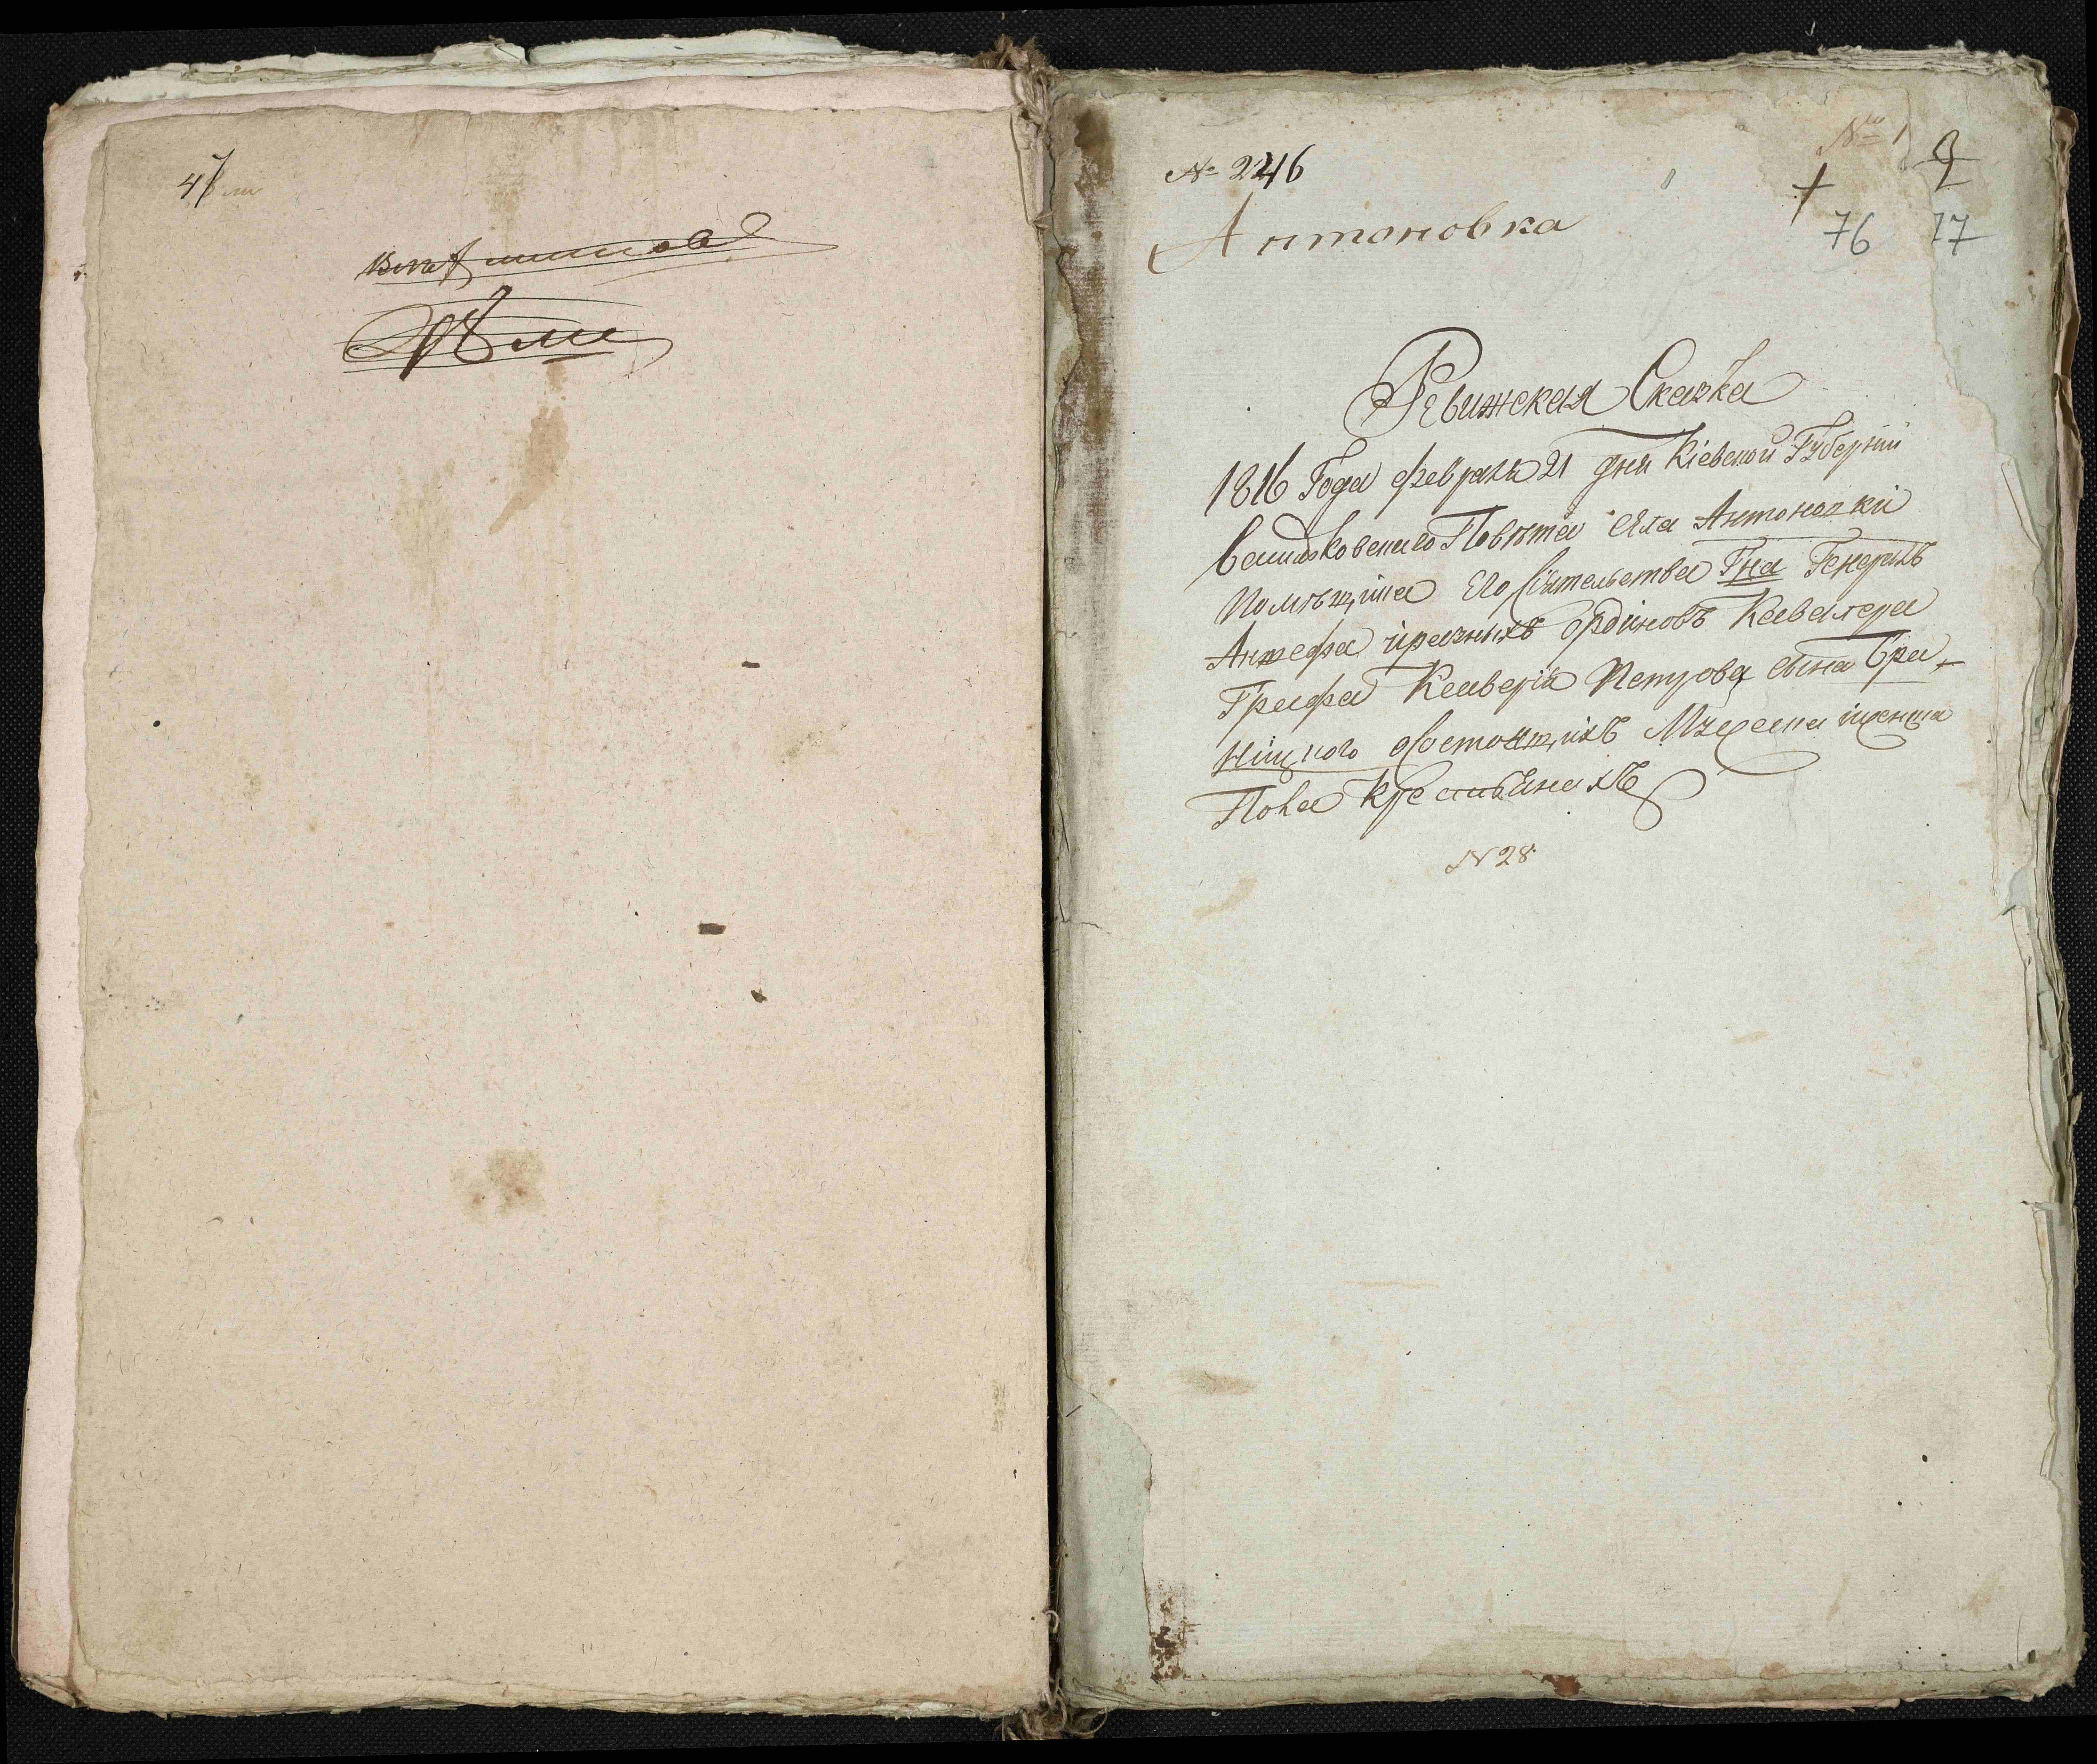 47
№ 2246
№ 1
9
Антоновка
76 77
Ревижская Сказка
1816 Года февраля 21 дня Кіевской Губерніи
васильковскаго Повѣта села Антоновки
Помѣщика Его Сіятельства Гна Генералъ
Аншефа иразныхъ Ординовъ Кавалера
Графа Ксаверія Петрова сына Бра-
ницкого осостоящихъ Мужеска иженска
Пола Крестьянахъ
N 28